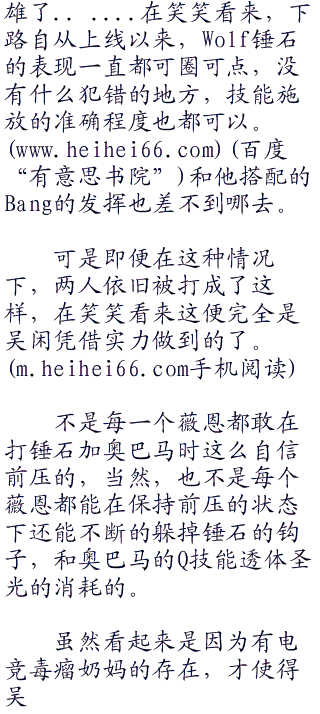 雄了.. .....在笑笑看来，下
路自从上线以来，Wolf锤石
的表现一直都可圈可点，没
有什么犯错的地方，技能施
放的准确程度也都可以。
(www.heihei66.com)(百度
“有意思书院”)和他搭配的
Bang的发挥也差不到哪去。
可是即便在这种情况
下，两人依旧被打成了这
样，在笑笑看来这便完全是
吴闲凭借实力做到的了。
(m.heihei66.com手机阅读)
不是每一个薇恩都敢在
打锤石加奥巴马时这么自信
前压的，当然，也不是每个
薇恩都能在保持前压的状态
下还能不断的躲掉锤石的钩
子，和奥巴马的Q技能透体圣
光的消耗的。
虽然看起来是因为有电
竞毒瘤奶妈的存在，才使得
吴